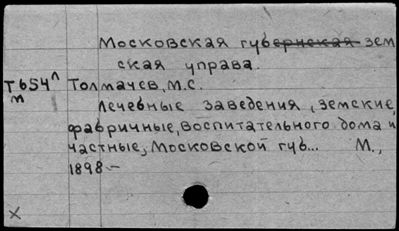 Московская губернская зем
ская управа.
Т654л Толмачев, М.С.
м
Лечебные заведения, земские,
фабричные, воспитательного дома и
частные, Московской губ... М.,
1898.-
x